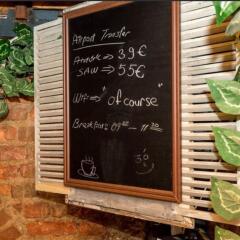 Airport Transfer
Atatürk → 39€
SAW → 55€
Wifi → "of course"
Breakfast: 09⁰⁰ - 11³⁰